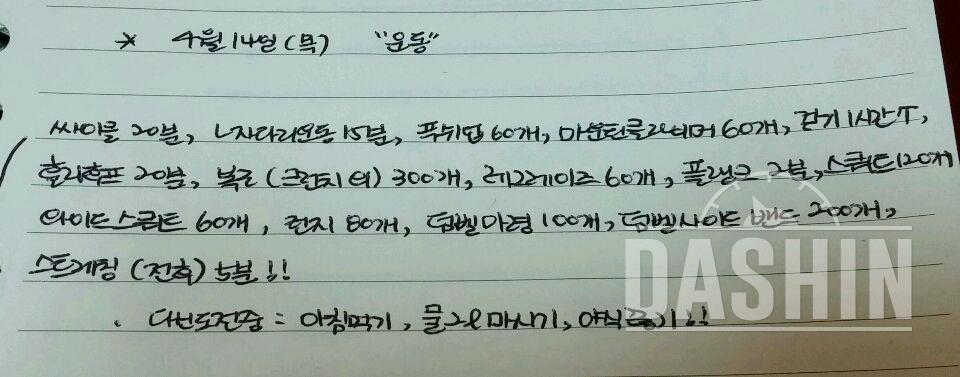 * 4월 14일 (목) "운동"
싸이클 20분, L자다리운동 15분, 푸쉬업 60개, 마운틴클라이머 60개, 걷기 1시간↑,
훌라후프 20분, 복근 (크런치 외) 300개, 레그레이즈 60개, 플랭크 2분, 스쿼트 120개
와이드스쿼트 60개, 런지 80개, 덤벨 100개, 덤벨사이드 밴드 200개,
스트레칭 (전후) 5분!!
. 다신도전중 = 아침먹기, 물2l마시기, 야식!!
DASHIN